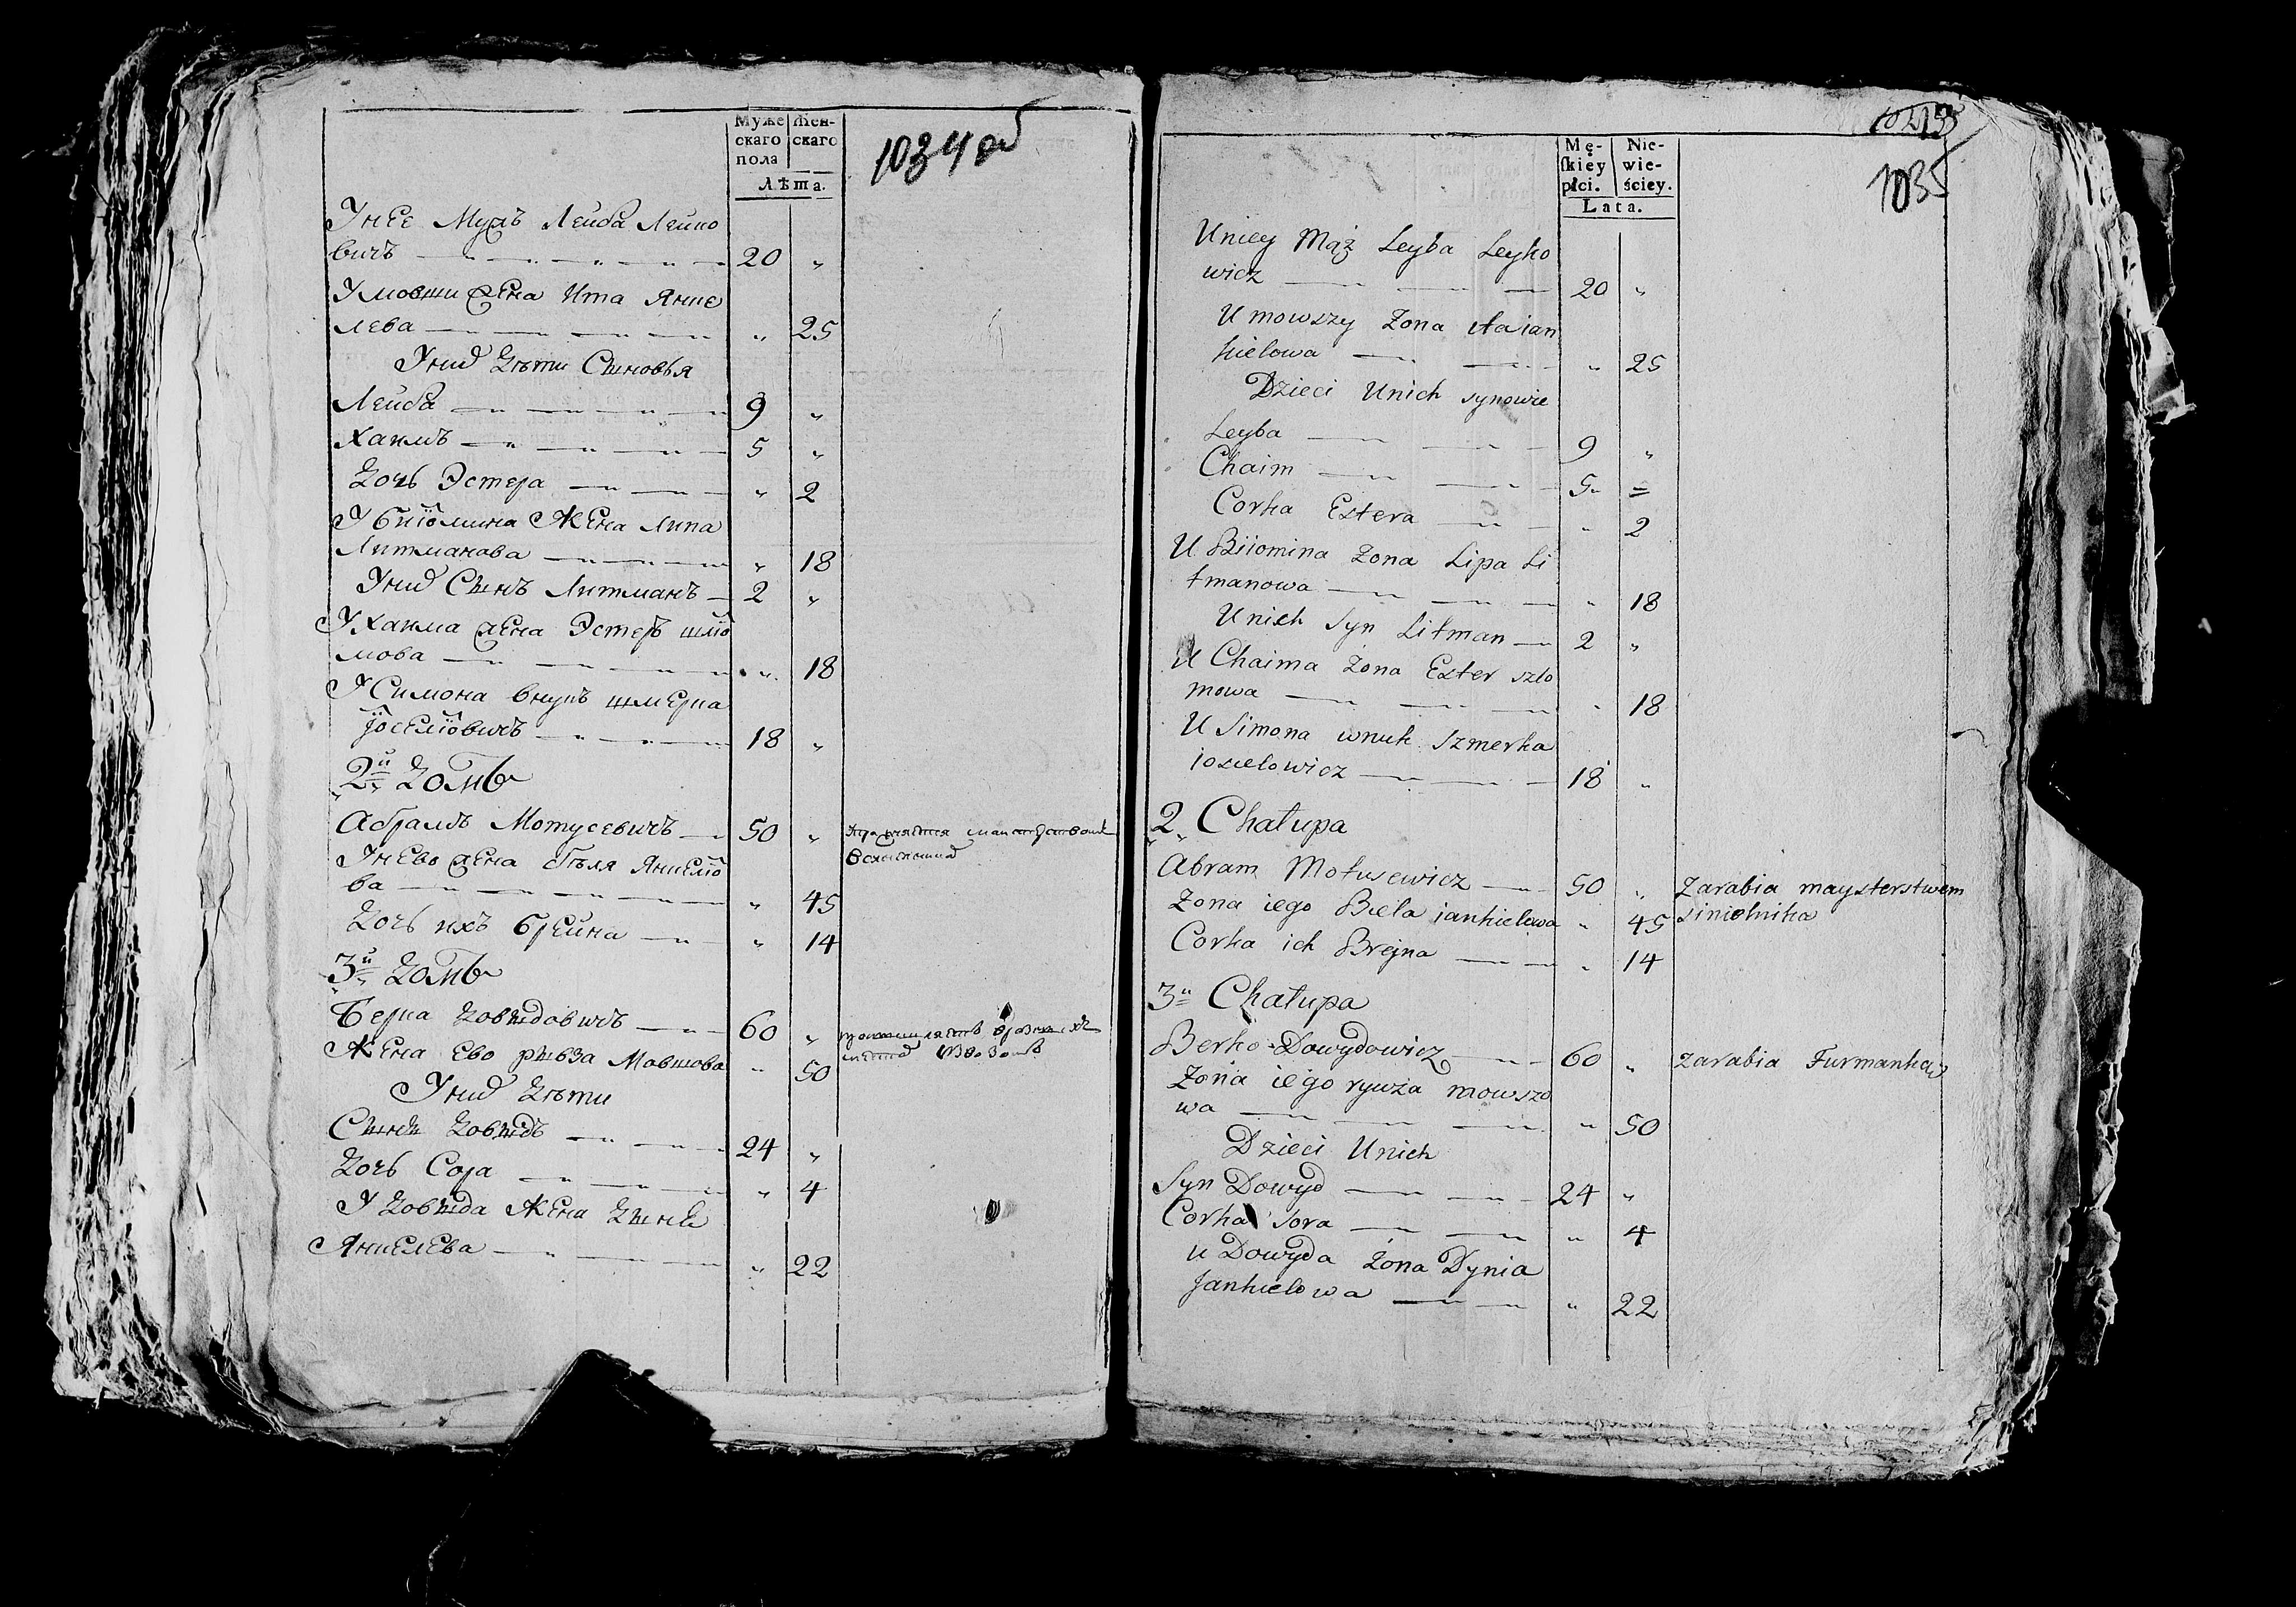 Муже
скаго
пола
Жен-
скаго
Лѣта.
1034 об
Унее Мужъ Лейба Лейко
вичъ 20 „
Умовши жена Ита Янке
лева „ 25
Уних Дѣти Сыновья
Лейба 9 „
Хаимъ 5 „
Дочь Эстера „ 2
У Биiомина Жена Липа
Литманова „ 18
Уних Сынъ Литманъ 2 „
У Хаима жена Эстеръ шлiо
мова „ 18
У Симона внукъ шмерка
iоселiовичъ 18 „
2й Домъ
Абрамъ Мотусевичъ 50 „
Унево жена бѣля Янкелiо
ва „ 45
Дочь ихъ Брейна „ 14
3й Домъ
Берка Довыдовичъ 60 „
Жена Ево рывза Мовшова „ 50
Уних Дѣти
Сынъ Довыдъ 24 „
Дочь Сора „ 4
У Довыда Жена Дыня
Янкелева „ 22
1035
Mę-
skiey
płci.
Nie-
wie-
ściey.
Lata.
Uniey Mąż Leyba Leyko
wicz 20 „
U mowszy Zona Ita ian
kielowa „ 25
Dzieci Unich synowie
Leyba 9 „
Chaim 5 „
Corka Estera „ 2
U Biiomina Zona Lipa Li
tmanowa „ 18
Unich Syn Litman 2 „
U Chaima Zona Ester szlo
mowa „ 18
U Simona wnuk Szmerka
ioselowicz 18 „
2„ Chałupa
Abram Motusewicz 50 „ Zarabia maysterstwem
Zona iego Biela iankielowa „ 45 sinielnika
Corka ich Brejna „ 14
3„ Chałupa
Berko Dowydowicz 60 „ zarabia Furmanką
Zona iego rywza mowszo
wa „ 50
Dzieci Unich
Syn Dowyd 24 „
Corka Sora „ 4
u Dowyda Zona Dynia
Jankielowa „ 22